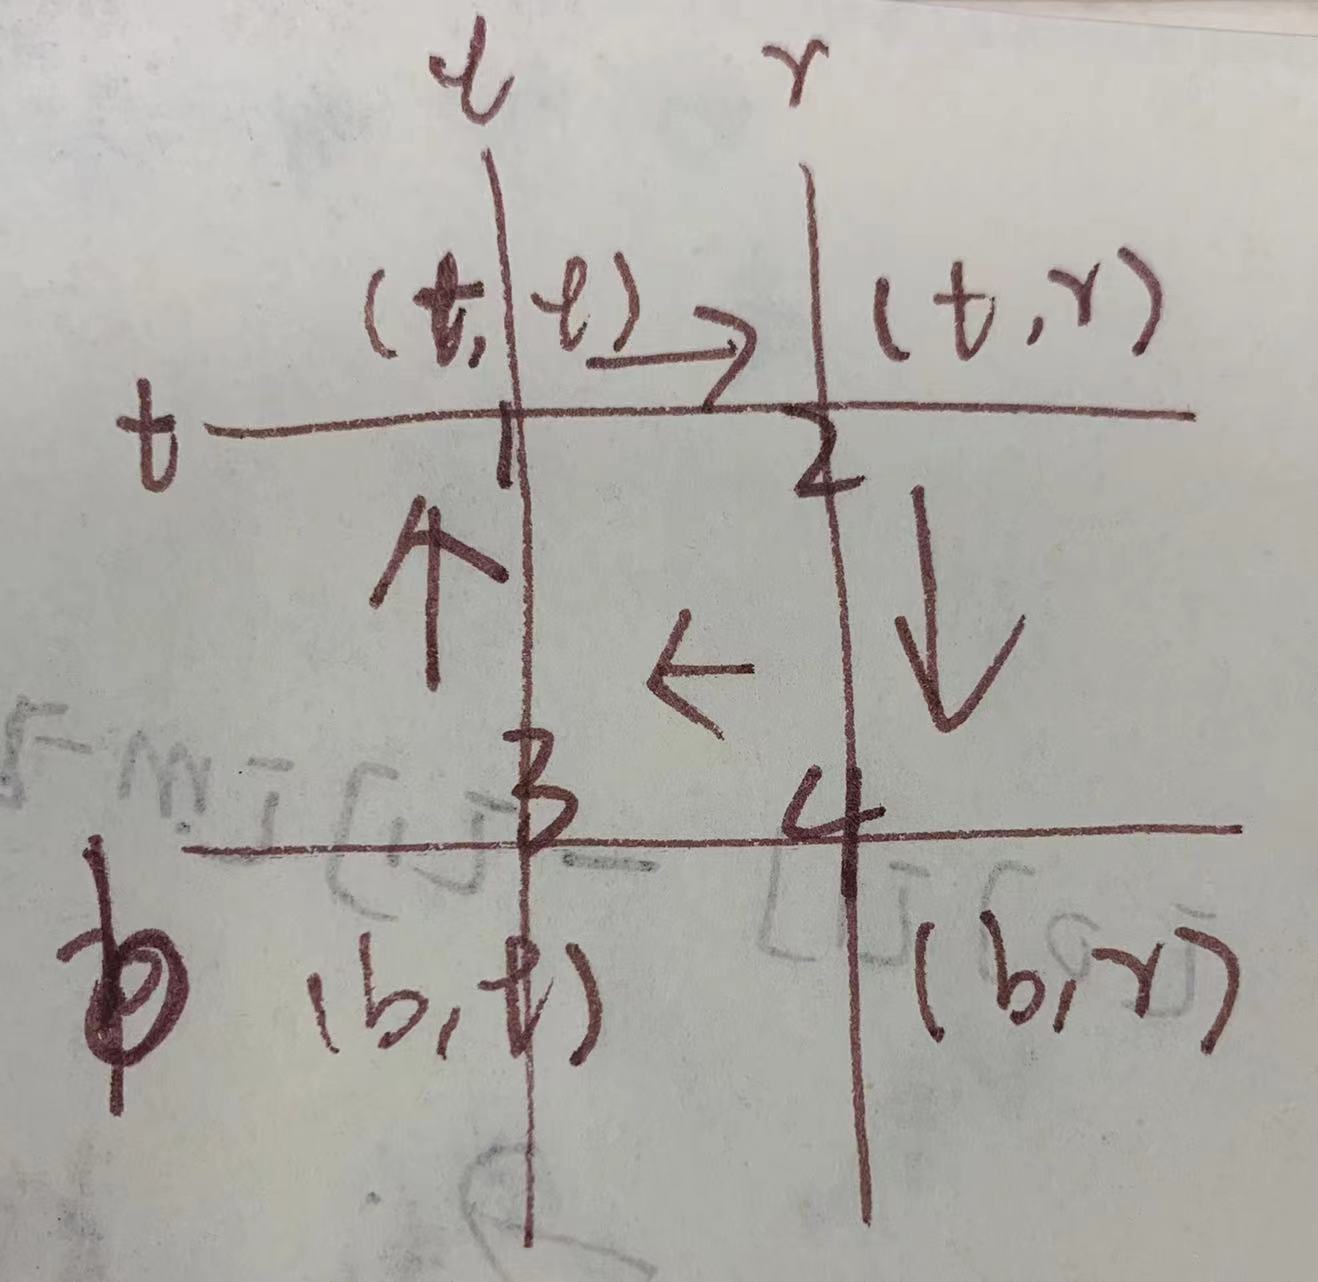 l r
(t, l) → (t, r)
t
1 2
↑ ← ↓
3 4
b
(b, l) (b, r)